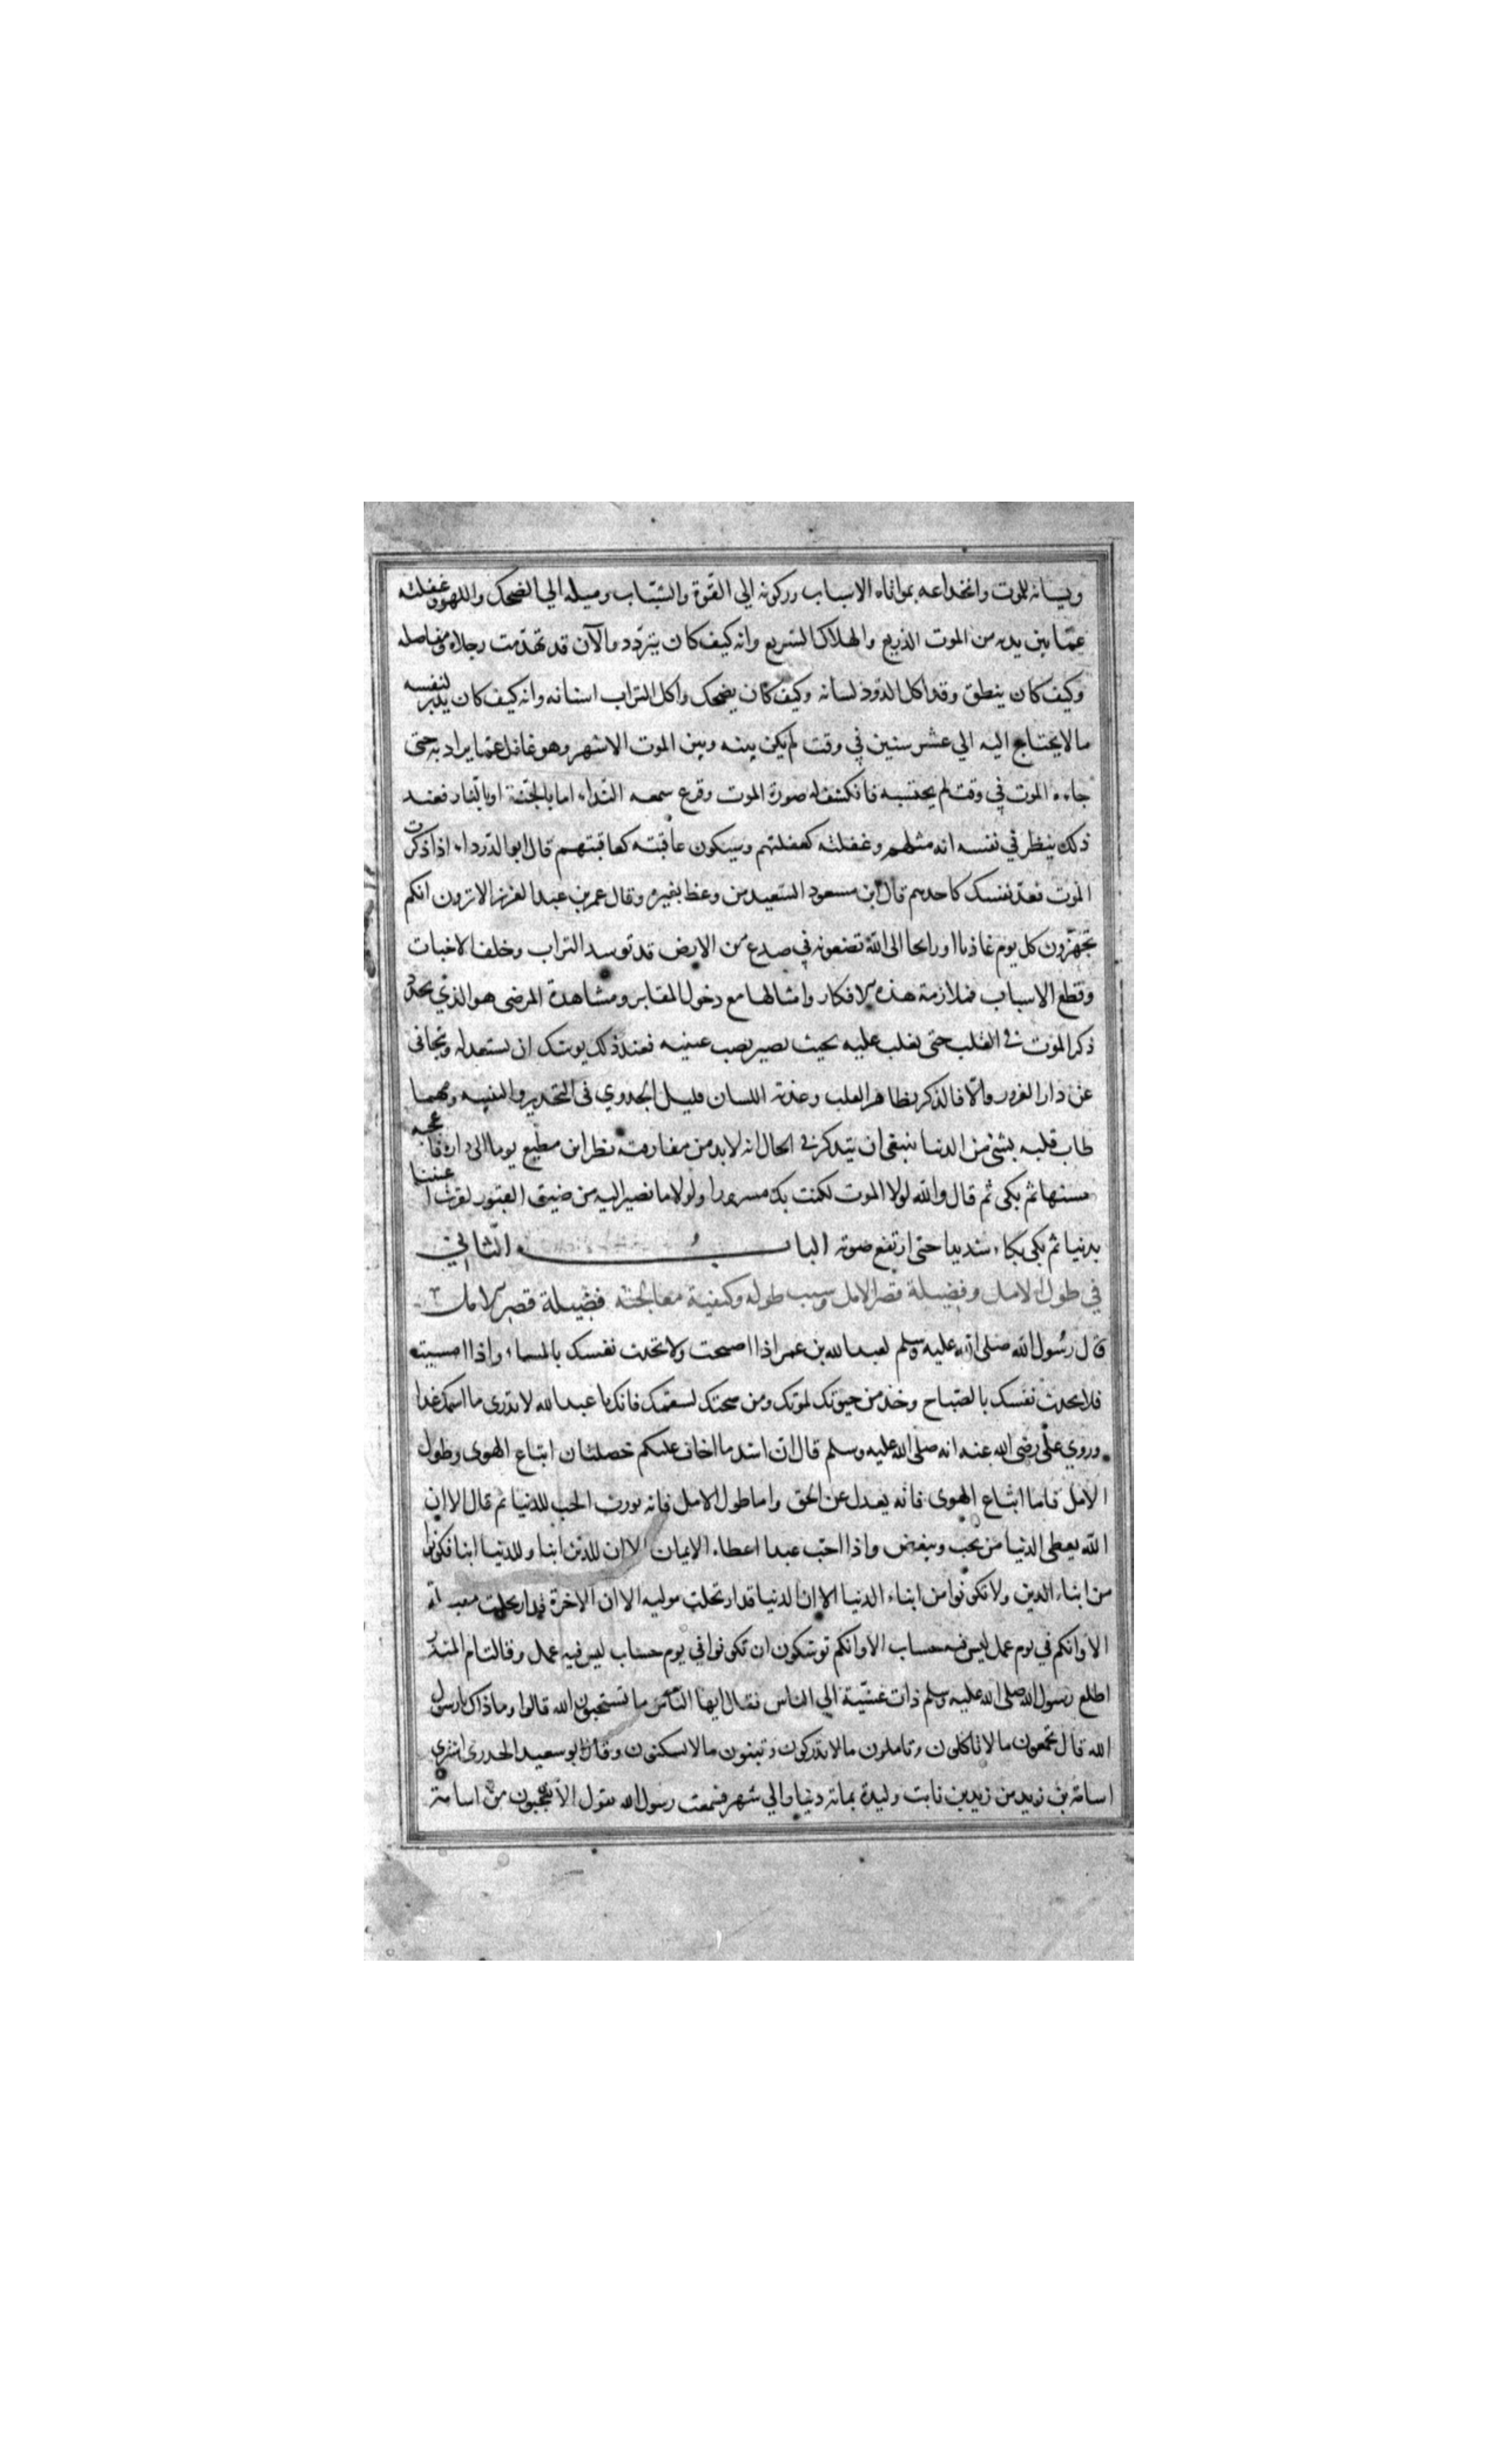 ونسيانه للموت وانخداعه بمواتاه الاسباب وركونه الى القوة والشباب وميله الى الضحك واللهو وغفلته
عمّا بين يديه من الموت الذريع والهلاك السريع وانه كيف كان يتردد والآن قد تهدمت رجلاه ومفاصله
وكيف كان ينطق وقد اكل الدود لسانه وكيف كان يضحك واكل التراب اسنانه وانه كيف كان يدبر لنفسه
مالا يحتاج اليه الي عشر سنين في وقت لم يكن بينه وبين الموت الا شهر وهو غافل عما يراد به حتى
جاءه الموت في وقت لم يحتسبه فانكشف له صورة الموت وقرع سمعه النداء اما بالجنة او بالنار فعند
ذلك ينظر في نفسه انه مثلهم وغفلته كغفلتهم وسيكون عاقبته كعاقبتهم قال ابو الدرداء اذا ذكرت
الموت فعد نفسك كاحدهم قال ابن مسعود السعيد من وعظ بغيره وقال عمر بن عبد العزيز الا ترون انكم
تجهزون كل يوم غاديا او رايحا الى الله تضعونه في صدع من الارض قد توسد التراب وخلف الاحباب
وقطع الاسباب فملازمة هذه الافكار وامثالها مع دخول المقابر ومشاهدة المرضى هو الذي يجدد
ذكر الموت في القلب حتى يغلب عليه بحيث يصير نصب عينيه فعند ذلك يوشك ان يستعد له ويتجافى
عن دار الغرور والا فالذكر بظاهر القلب وعذبة اللسان قليل الجدوي فى التحذير والتنبيه ومهما
طاب قلبه بشئ من الدنيا ينبغى ان يتذكر في الحال انه لابد من مفارقته نظر ابن مطيع يوما الى داره فاعجبه
حسنها ثم بكى ثم قال والله لولا الموت لكنت بك مسرورا ولولا ما نصير اليه من ضيق القبور لقرت اعيننا
بدنيا ثم بكى بكاء شديدا حتى ارتفع صوته الباب الثاني
في طول الامل وفضيلة قصر الامل وسبب طوله وكيفية معالجته فضيلة قصر الامل
قال رسول الله صلى الله عليه وسلم لعبد الله بن عمر اذا اصبحت ولا تحدث نفسك بالمساء واذا امسيت
فلا تحدث نفسك بالصباح وخذ من حيوتك لموتك ومن صحتك لسقمك فانك يا عبد الله لا تدرى ما اسمك غدا
وروي علي رضى الله عنه انه صلى الله عليه وسلم قال ان اشد ما اخاف عليكم خصلتان اتباع الهوى وطول
الامل فاما اتباع الهوى فانه يعدل عن الحق واما طول الامل فانه يورث الحب للدنيا ثم قال الا ان
الله يعطى الدنيا من يحب ويبغض واذا احب عبدا اعطاه الايمان الا ان للدين ابنا وللدنيا ابنا فكونوا
من ابناء الدين ولا تكونوا من ابناء الدنيا الا ان الدنيا قد ارتحلت موليه الا ان الاخرة قد ارتحلت مقبلة
الا وانكم في يوم عمل ليس فيه حساب الا وانكم توشكون ان تكونوا في يوم حساب ليس فيه عمل وقالت ام المنذر
اطلع رسول الله صلى الله عليه وسلم ذات عشية الي الناس فقال ايها الناس ما تستحيون الله قالوا وما ذاك يا رسول
الله قال تجمعون مالا تاكلون وتاملون مالا تدركون وتبنون مالا تسكنون وقال ابو سعيد الخدرى اشترى
اسامة بن زيد من زيد بن ثابت وليدة بمائة دينار الي شهر فسمعت رسول الله يقول الا تعجبون من اسامة